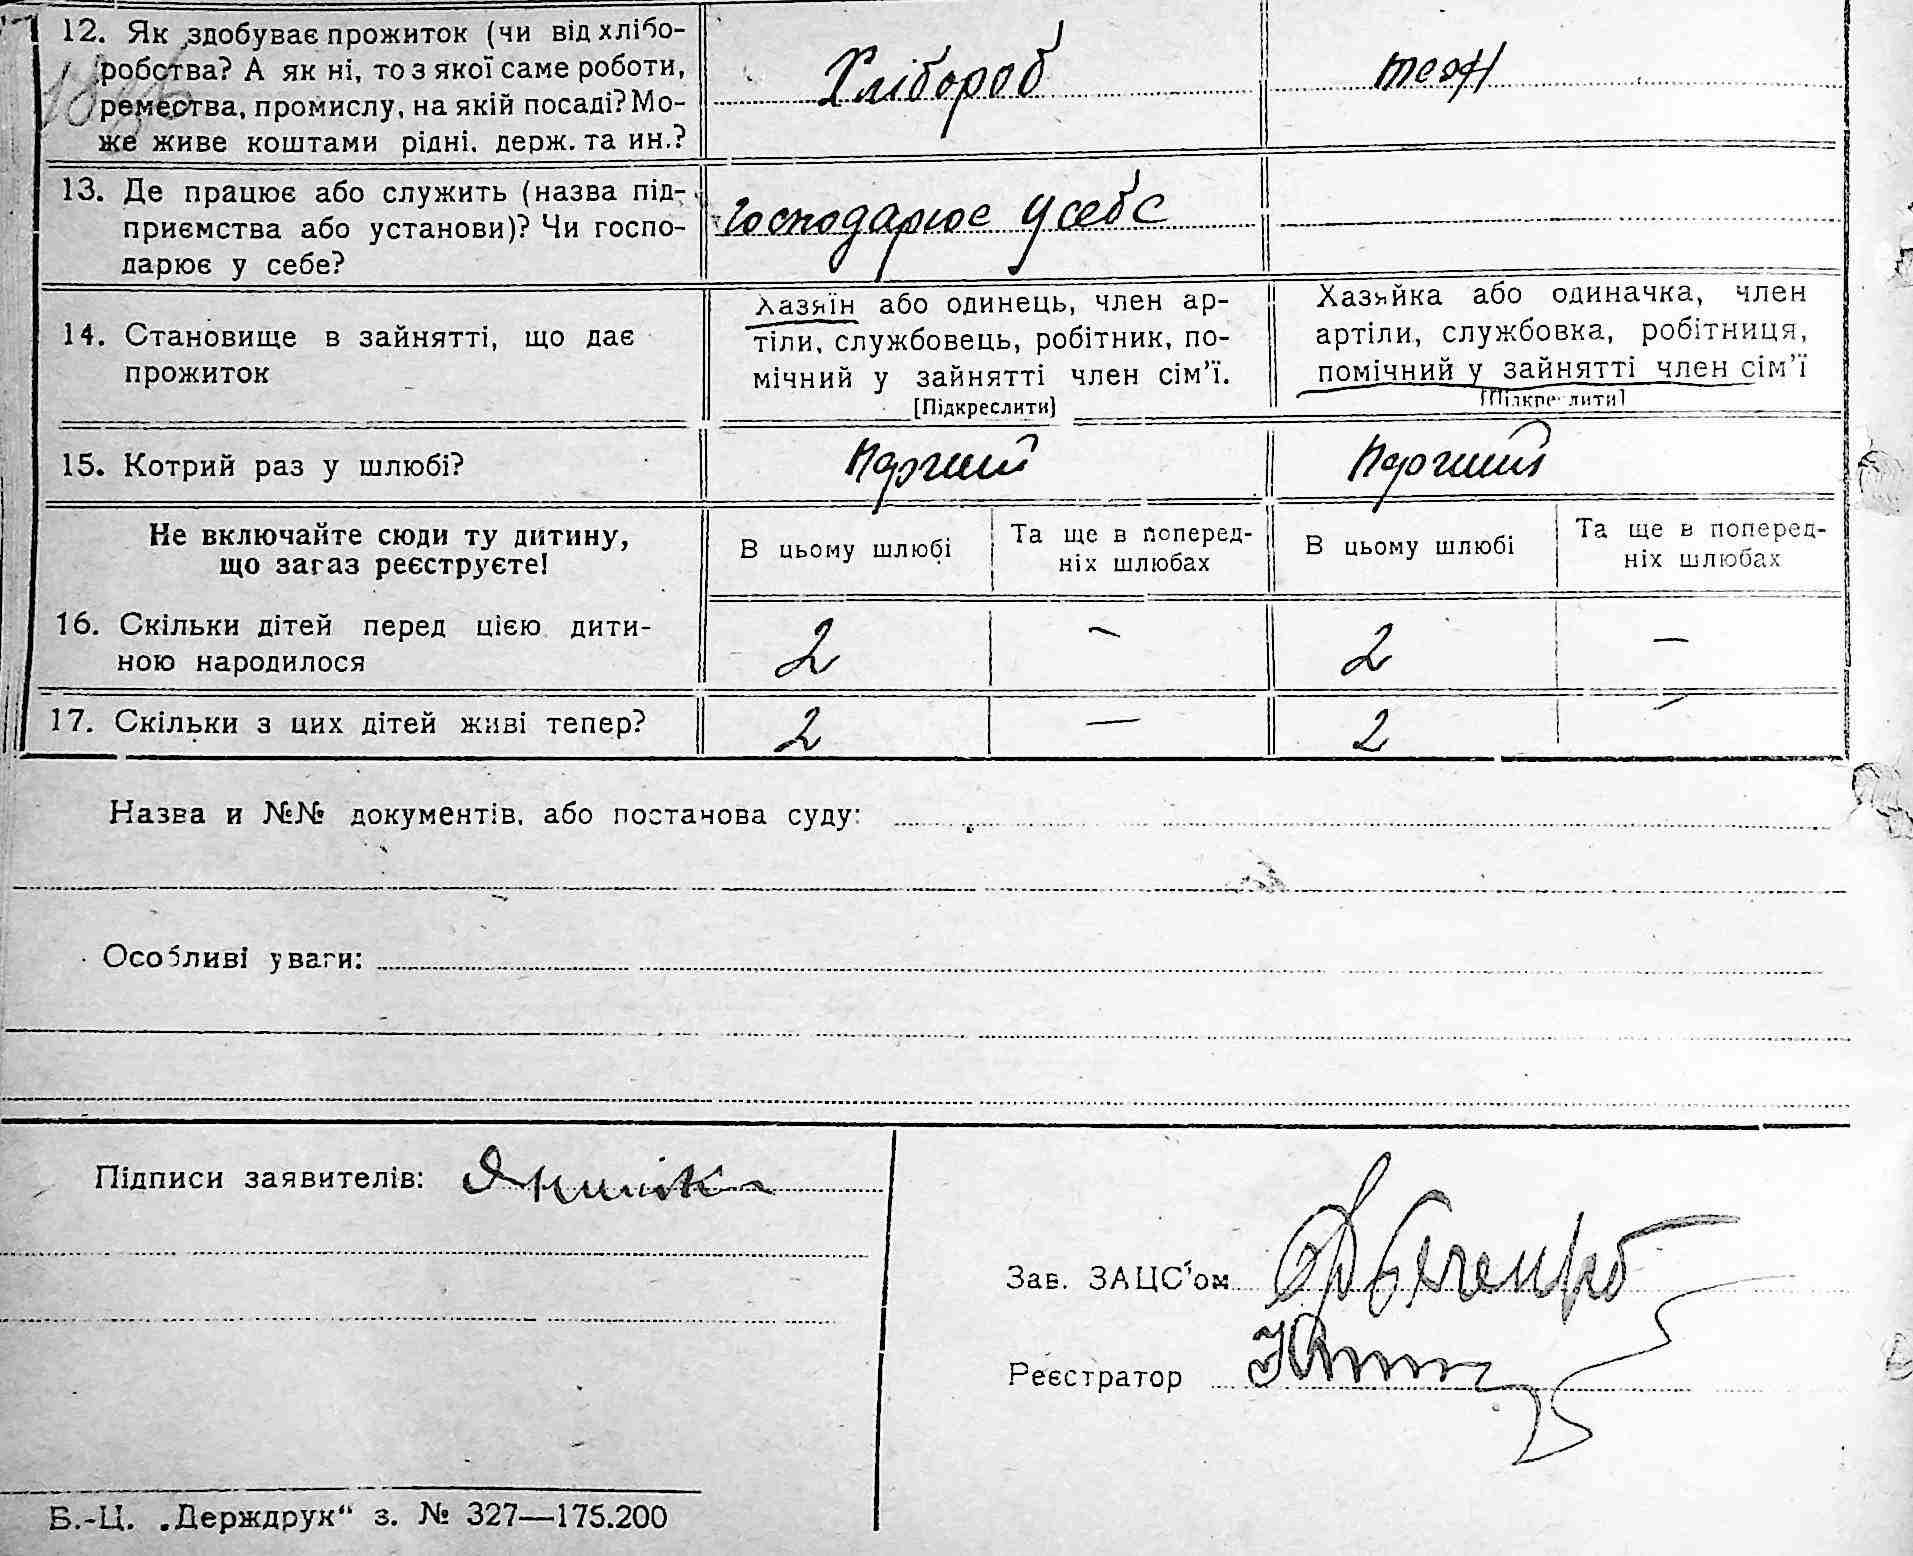 12. Як здобуває прожиток (чи від хлібо-
робства? А як ні, то з якої саме роботи,
ремества, промислу, на якій посаді? Мо-
же живе коштами рідні, держ. та ин.?
Хлібороб
теж
13. Де працює або служить (назва під-
приємства або установи)? Чи госпо-
дарює у себе?
господарює у себе
14. Становище в зайнятті, що дає
прожиток
Хазяїн або одинець, член ар-
тіли, службовець, робітник, по-
мічний у зайнятті член сім'ї.
[Підкреслити]
Хазяйка або одиначка, член
артіли, службовка, робітниця,
помічний у зайнятті член сім'ї
[Підкреслити]
15. Котрий раз у шлюбі?
Перший
Перший
Не включайте сюди ту дитину,
що зараз реєструєте!
В цьому шлюбі
Та ще в поперед-
ніх шлюбах
В цьому шлюбі
Та ще в поперед-
ніх шлюбах
16. Скільки дітей перед цією дити-
ною народилося
2 — 2 —
17. Скільки з цих дітей живі тепер?
2 — 2 —
Назва и №№ документів, або постанова суду:
Особливі уваги:
Підписи заявителів:
Зав. ЗАЦС'ом
Реєстратор
Б.-Ц. „Держдрук“ з. № 327—175.200